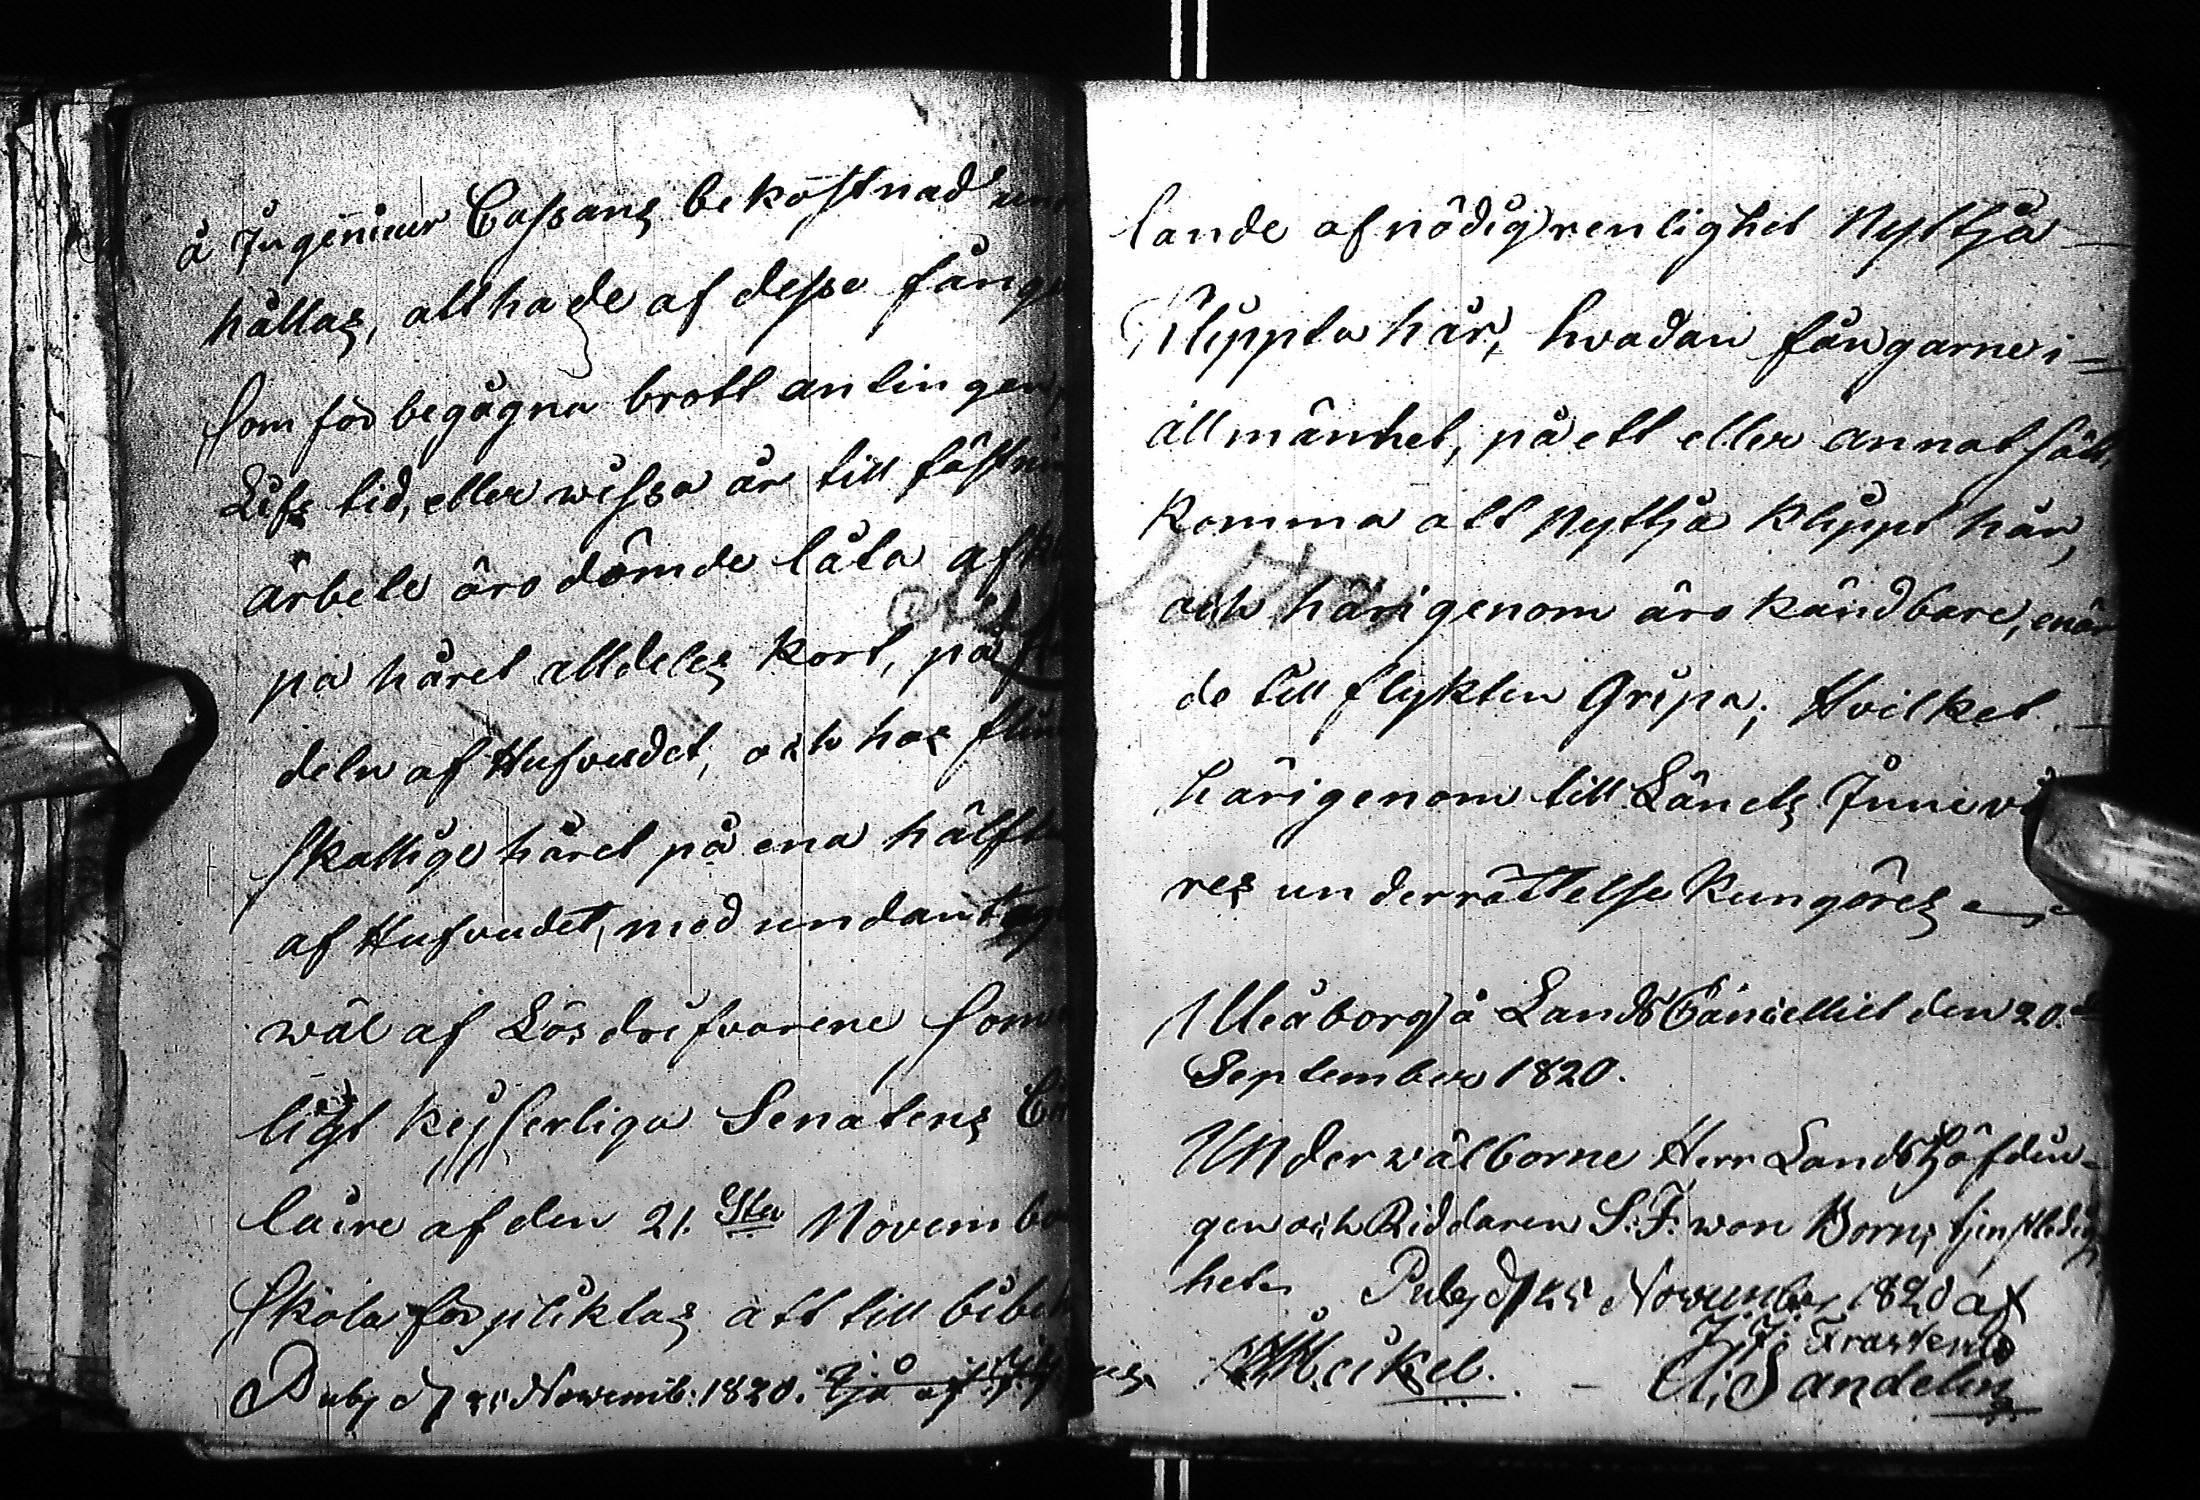 å Ingenieur Cassans bekostnad un
hållas, att hade af desse fång
som för begågna brott antingen,
Lifs tid, eller wissa år till fästni
arbete äro dömde låta afk
pa håret alldeles kort, på
deln af Hufvudet, och hos flin
skallige håret på ena hälft
af Hufvudet, med undantag
wäl af Lösdrifvarene som
ligt Kejserliga Senatens Ci
laire af den 21.sta Novembe
skola förpliktas att till bibe
Publ d 25 Novemb: 1820.
lande af nödig renlighet Nyttja
Klippta hår, hvadan fångarne i
allmänhet, på ett eller annat sätt,
komma att Nyttja klippt hår,
och härigenom äro kändbare, enär
de till flykten Gripa; Hvilket
härigenom till Länets Innevå
res underrättelse kungöres
Uleåborg å Lands Cancelliet den 20.de
September 1820.
Under wälborne Herr Landshöfdin-
gen och Riddaren S: F: von Borns tjenstledig
het. Publ d 25 Novembr 1820 af
J: J: Frosterus
Meikel. A: Sandelin